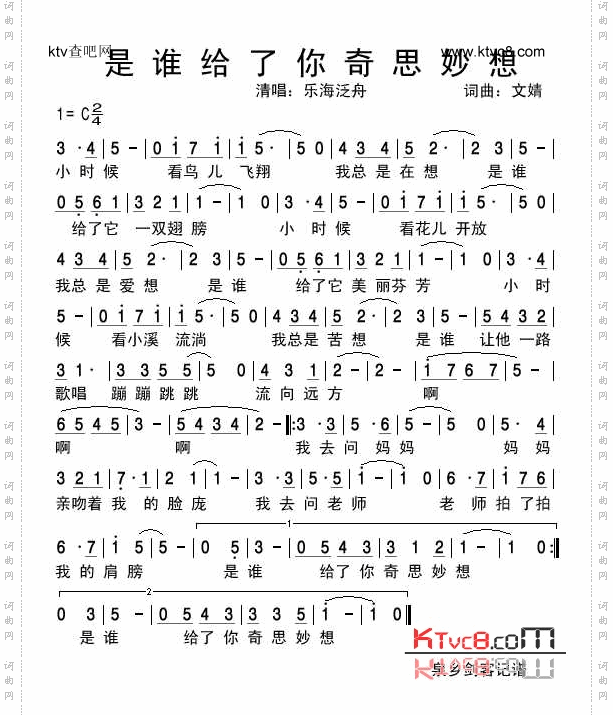 ktv查吧网
www.ktvc8.com
是谁给了你奇思妙想
清唱：乐海泛舟 词曲：文婧
1= C 2/4
3 · 4 | 5 - | 0 1 7 1 | 1 5 · | 5 0 | 4 3 4 5 | 2 · | 2 3 | 5 - |
小时候 看鸟儿 飞翔 我总是在想 是谁
0 5 6 1 | 3 2 1 | 1 - | 1 0 | 3 · 4 | 5 - | 0 1 7 1 | 1 5 · | 5 0 |
给了它 一双翅膀 小时候 看花儿开放
4 3 4 5 | 2 · | 2 3 | 5 - | 0 5 6 1 | 3 2 1 | 1 - | 1 0 | 3 · 4 |
我总是爱想 是谁 给了它美丽芬芳 小时
5 - | 0 1 7 1 | 1 5 · | 5 0 | 4 3 4 5 | 2 · | 2 3 | 5 - | 0 5 3 2 |
候 看小溪 流淌 我总是苦想 是谁 让他一路
3 1 · | 3 3 5 5 | 5 0 | 4 3 1 | 2 · | 2 - | 1 7 6 7 |
歌唱 蹦蹦跳跳 流向远方 啊
6 5 4 5 | 3 - | 5 4 3 4 | 2 - :3 · 3 | 6 5 · | 5 - | 5 0 | 5 · 4 |
啊 啊 我去问妈妈 妈妈
3 2 1 | 7 · 1 | 2 1 | 2 - | 3 · 3 | 6 4 · | 1 - | 1 0 | 6 6 7 | 1 7 6 |
亲吻着我 的脸庞 我去问老师 老师拍了拍
1
6 · 7 | 1 5 | 5 - | 0 5 | 3 - | 0 5 4 3 | 3 3 2 | 1 - | 1 0 :
我的肩膀 是谁 给了你奇思妙想
2
0 3 | 5 - | 0 5 4 3 | 3 3 5 | 1 - | 1 0
是谁 给了你奇思妙想
KTvc8.com
泉乡剑客记谱